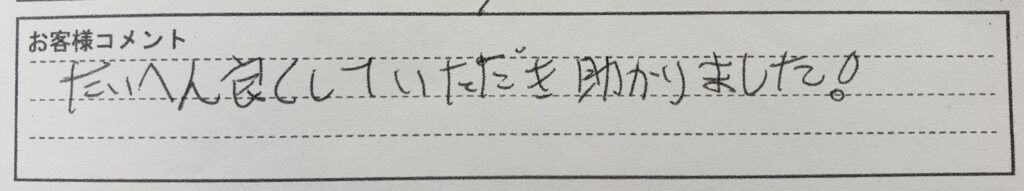 お客様コメント
たいへん良くしていただき助かりました!